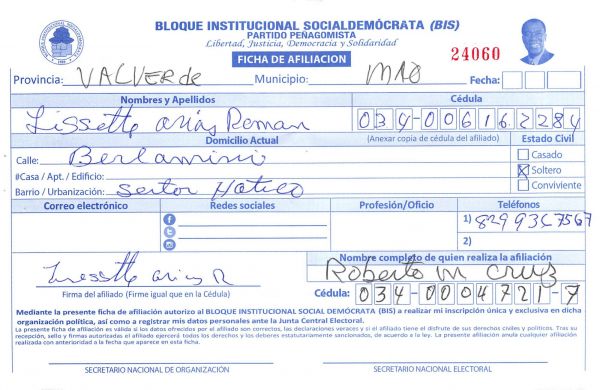 BLOQUE INSTITUCIONAL SOCIALDEMÓCRATA (BIS)
PARTIDO PEÑAGOMISTA
Libertad, Justicia, Democracia y Solidaridad
FICHA DE AFILIACION
24060
Provincia: VALVERde Municipio: MAO Fecha:
Nombres y Apellidos Cédula
Lissette arias Roman 034-0061622-84
Domicilio Actual (Anexar copia de cédula del afiliado) Estado Civil
Calle: Berlamini Casado
#Casa / Apt. / Edificio: Soltero
Barrio / Urbanización: Sector Hatico Conviviente
Correo electrónico Redes sociales Profesión/Oficio Teléfonos
1) 8299367567
2)
Nombre completo de quien realiza la afiliación
arias R Roberto M Cruz
Firma del afiliado (Firme igual que en la Cédula) Cédula: 034-0004721-7
Mediante la presente ficha de afiliación autorizo al BLOQUE INSTITUCIONAL SOCIAL DEMÓCRATA (BIS) a realizar mi inscripción única y exclusiva en dicha
organización política, así como a registrar mis datos personales ante la Junta Central Electoral.
La presente ficha de afiliación es válida si los datos ofrecidos por el afiliado son correctos, las declaraciones veraces y si el afiliado tiene el disfrute de sus derechos civiles y políticos. Tras su
recepción, sello y firmas autorizadas el afiliado ejercerá todos los derechos y los deberes estatutariamente sancionados, de acuerdo a la ley. La presente afiliación anula cualquier afiliación
realizada con anterioridad a la fecha que aparece en esta ficha.
SECRETARIO NACIONAL DE ORGANIZACIÓN SECRETARIO NACIONAL ELECTORAL